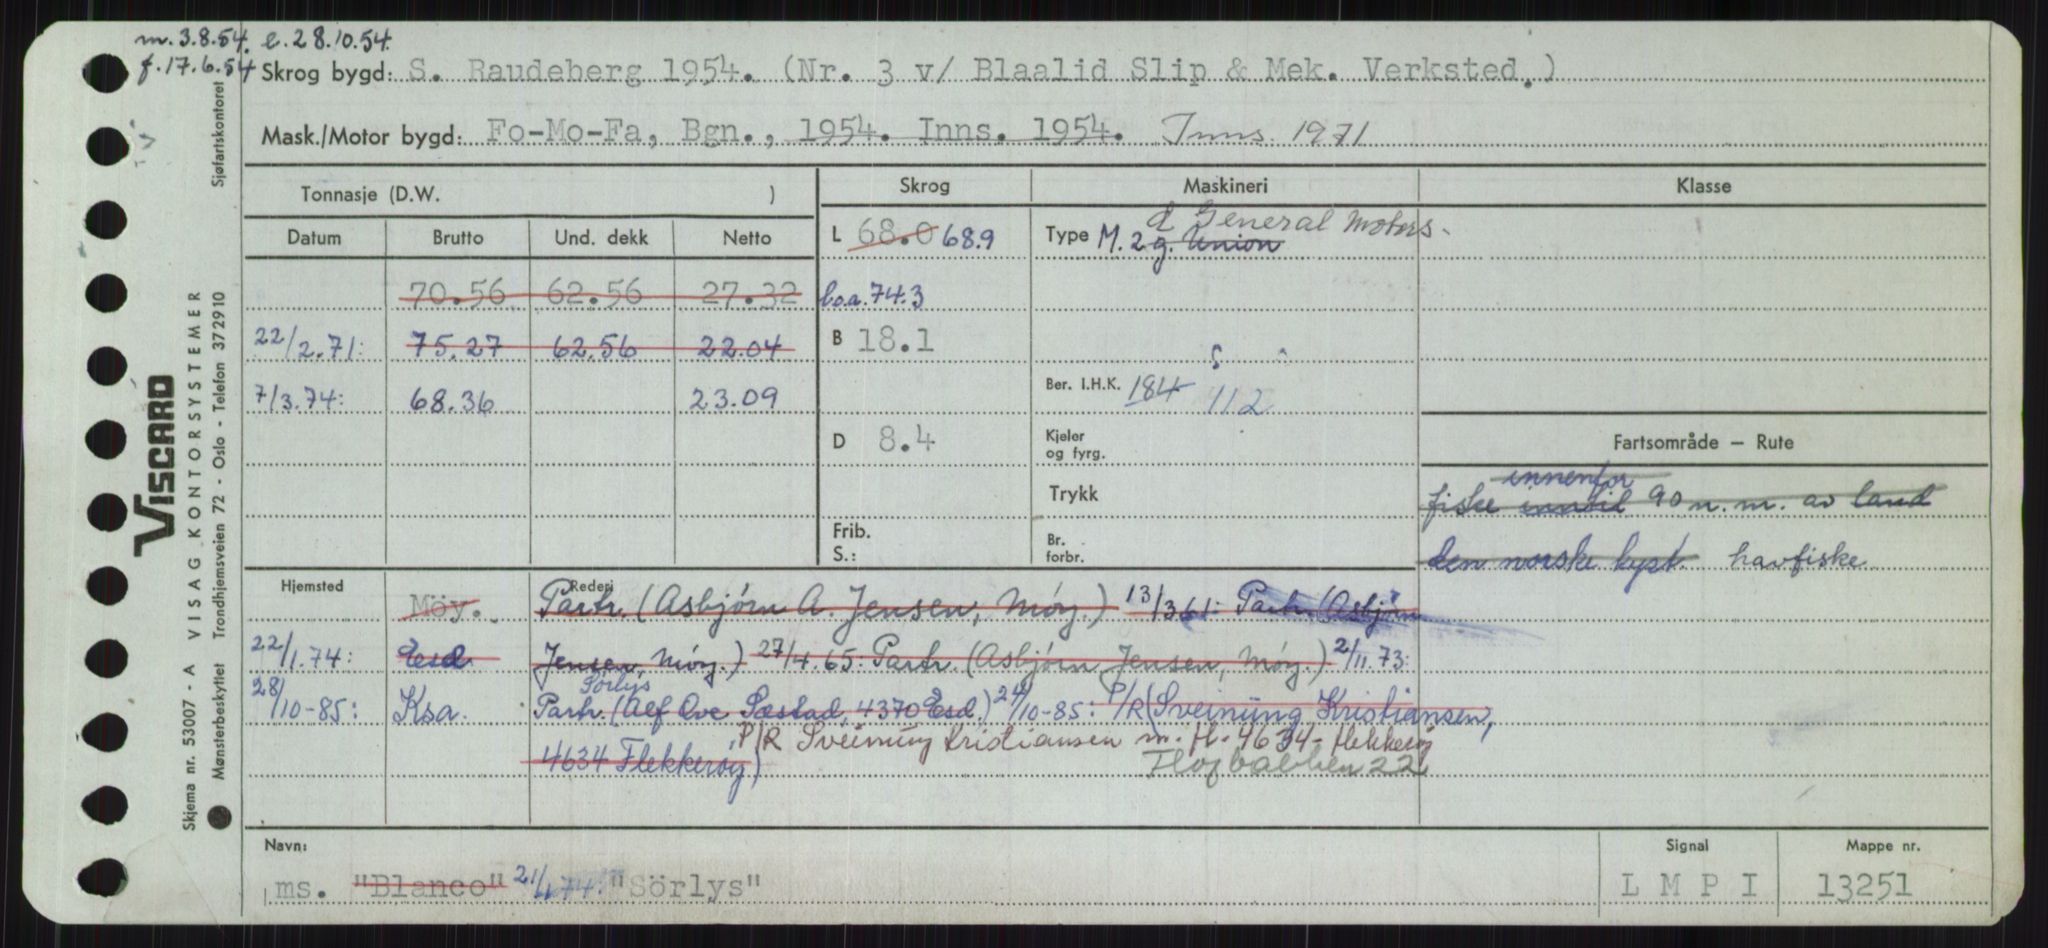 m. 3.8.54. e. 28.10.54.
f. 17.6.54
Skrog bygd: S. Raudeberg 1954. (Nr. 3 v/ Blaalid Slip & Mek. Verksted.)
Mask./Motor bygd: Fo-Mo-Fa, Bgn., 1954. Inns. 1954. Inns. 1971
Tonnasje (D.W. ) Skrog Maskineri Klasse
Datum Brutto Und. dekk Netto L 68.0 68.9 Type M. 2 g. Union d General Motors.
70.56 62.56 27.32 l.o.a. 74.3
22/2.71: 75.27 62.56 22.04 B 18.1
7/3.74: 68.36 23.09 Ber. I.H.K. 184 112
D 8.4 Kjeler og fyrg.
Fartsområde – Rute
Trykk
innenfor
fiske inntil 90 n.m. av land
Frib.
S.: Br. forbr.
den norske kyst. havfiske
Hjemsted Rederi
Möy. Partr. (Asbjørn A. Jensen, Möy.) 13/3 61: Partr. (Asbjörn
22/1.74: Esd Jensen, Möy.) 27/4.65: Partr. (Asbjörn Jensen, Möy.) 2/11.73:
Sörlys
28/10-85: Ksa. Partr. (Alf Ove Sæstad, 4370 Esd.) 24/10-85: P/R (Sveinung Kristiansen,
4634 Flekkeröy) P/R Sveinung Kristiansen m. fl. 4634 - Flekkeröy
22
Navn: Signal Mappe nr.
ms. "Blanco" 21/1 74: "Sörlys" L M P I 13251
VISCARD
VISAG KONTORSYSTEMER
Skjema nr. 53007 - A
Mønsterbeskyttet Trondhjemsveien 72 - Oslo - Telefon 372910 Sjøfartskontoret